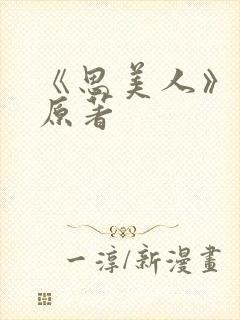 《思美人》
原著
一淳/新漫畫